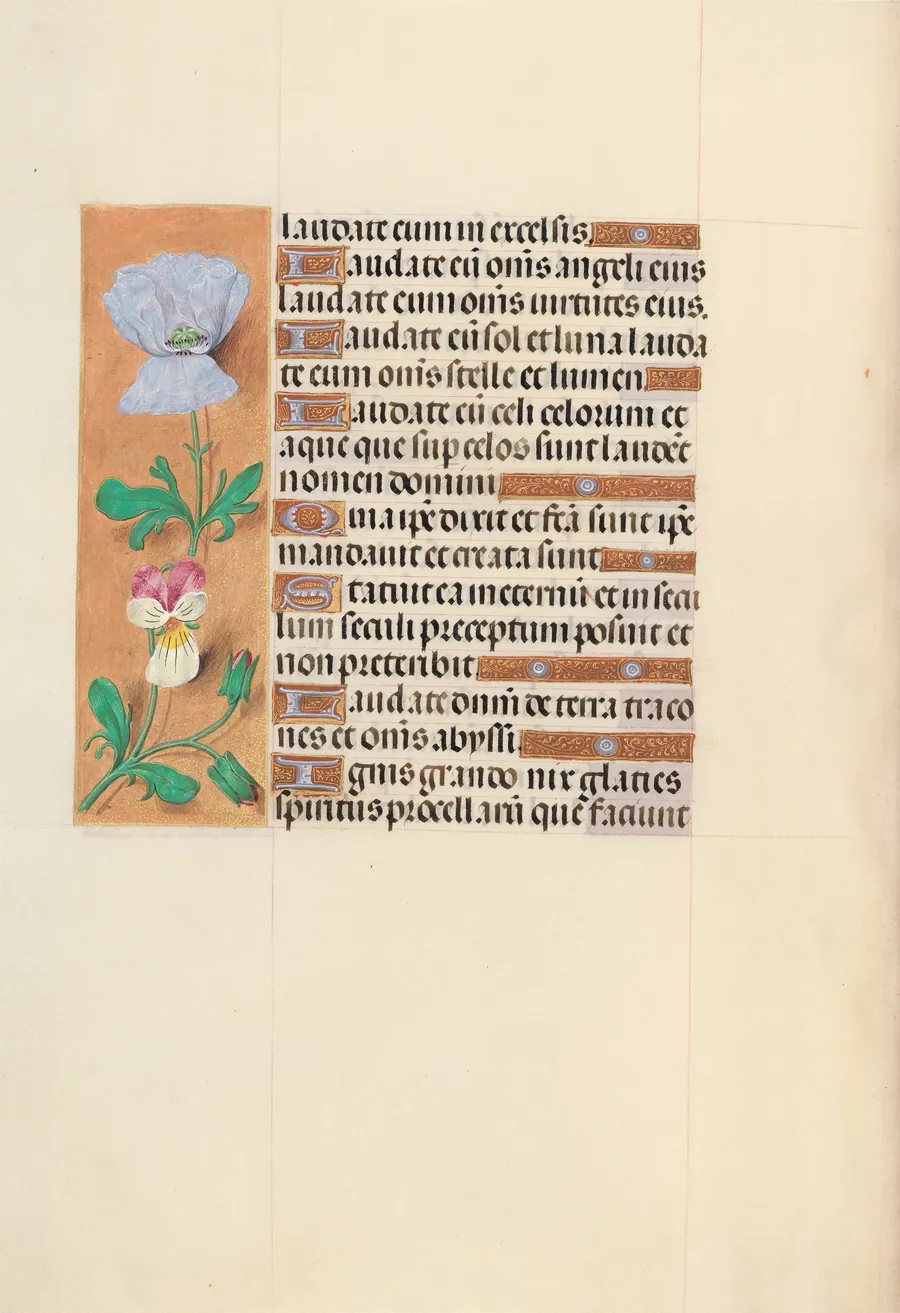 laudate eum in excelsis.
Laudate eū om̄s angeli eius
laudate eum om̄s uirtutes eius.
Laudate eū sol et luna lauda
te eum om̄s stelle et lumen
Laudate eū celi celorum et
aque que sup celos sunt laudēt
nomen domini
Q̄ma ip̄e dixit et fc̄a sunt ip̄e
mandauit et creata sunt
Statuit ea in eternū et in secu
lum seculi preceptum posuit et
non preteribit
Laudate dnm̄ de terra traco
nes et om̄s abyssi.
Ignis grando nix glacies
spiritus procellarū que faciunt